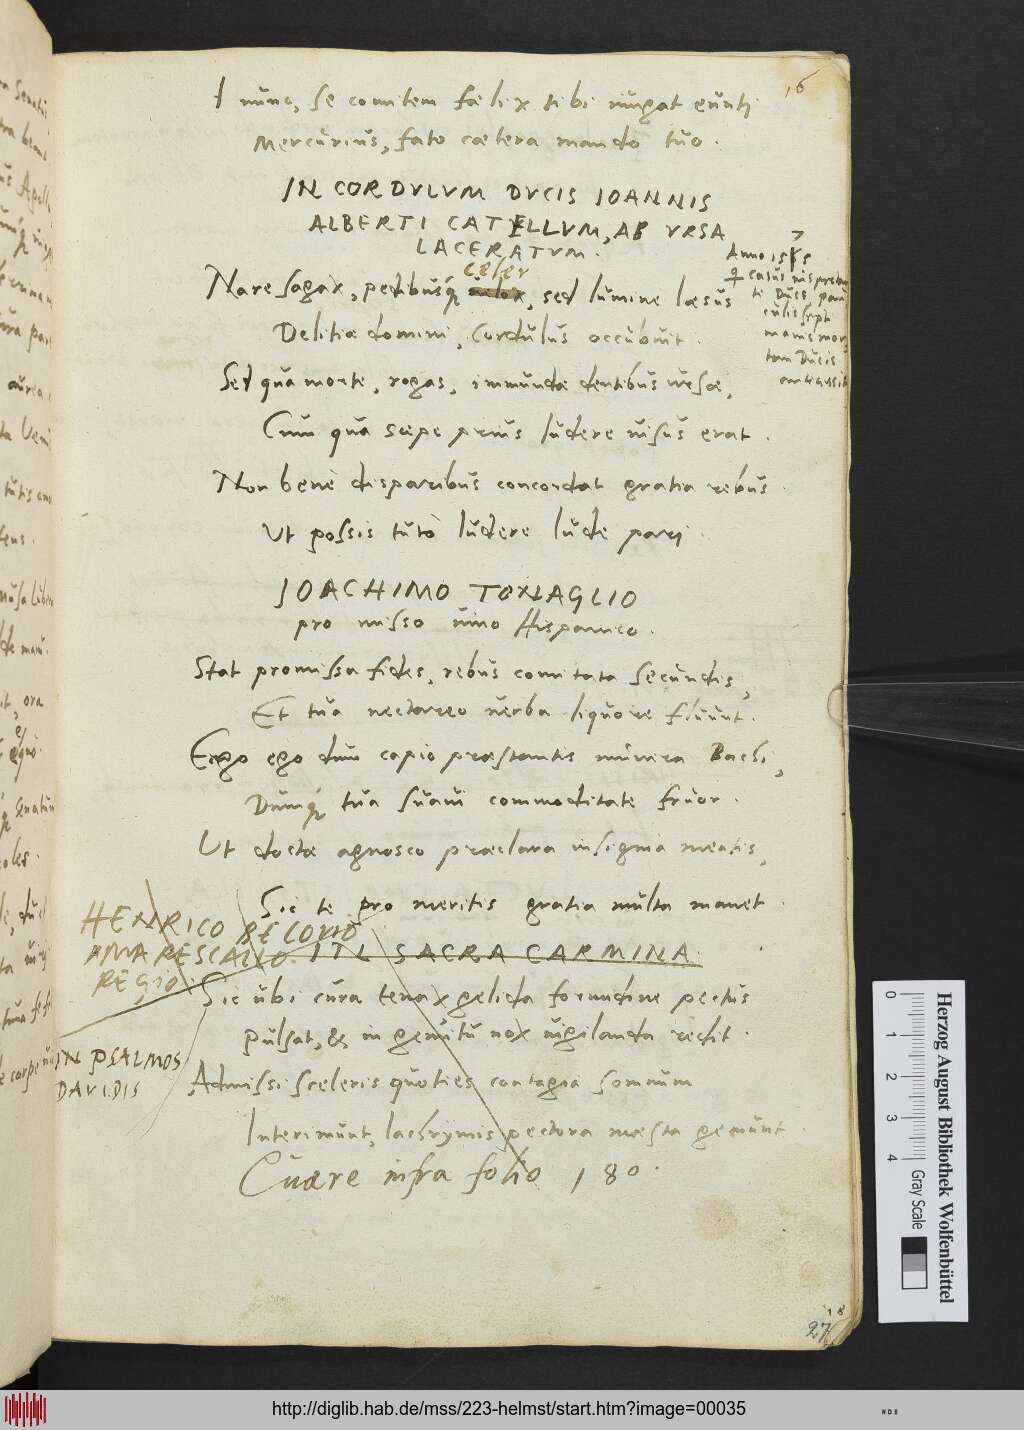 16
I nunc, se comitem fælix tibi iungat eunti
Mercurius, fato cætera mando tuo.
IN CORDULUM DUCIS IOANNIS
ALBERTI CATELLUM, AB URSA
LACERATUM.
Anno 15
casus
Ducis
mortem Ducis
celer
Nare sagax, pedibusq́ velox, sed lumine læsus
Delitiæ domini, Cordulus occubuit.
Sed qua morte, rogas, immundæ dentibus ursæ,
Cum qua sæpe prius ludere visus erat.
Non bene disparibus concordat gratia rebus
Ut possis tutò ludere lude pari.
JOACHIMO TONAGLIO
pro misso vino Hispanico.
Stat promissa fides, rebus comitata secundis,
Et tua nectareo verba liquore fluunt.
Ergo ego dum capio præstantis munera Bachi,
Dumq́ tua suavi commoditate fruor.
Ut doctæ agnosco præclara insignia mentis,
Sic te pro meritis gratia multa manet.
HENRICO BELOVIO
A MARESCALLO
REGIO.
SACRA CARMINA
Sic ubi cura tenax gelida formidine pectus
Pulsat, & in gemitu nox vigilanda redit.
IN PSALMOS
DAVIDIS
Admissi sceleris quoties contagia somnum
Interimunt, lachrymis pectora mæsta gemunt.
Quære infra folio 180.
18
27
Herzog August Bibliothek Wolfenbüttel
0 1 2 3 4
Gray Scale
http://diglib.hab.de/mss/223-helmst/start.htm?image=00035